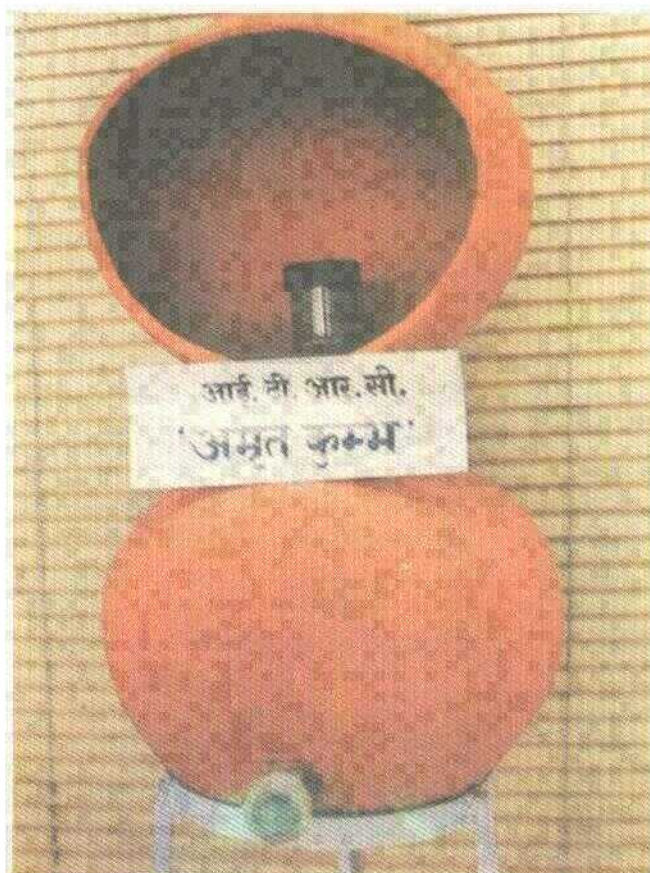 आई. टी. आर. सी.
'अमृत कुम्भ'